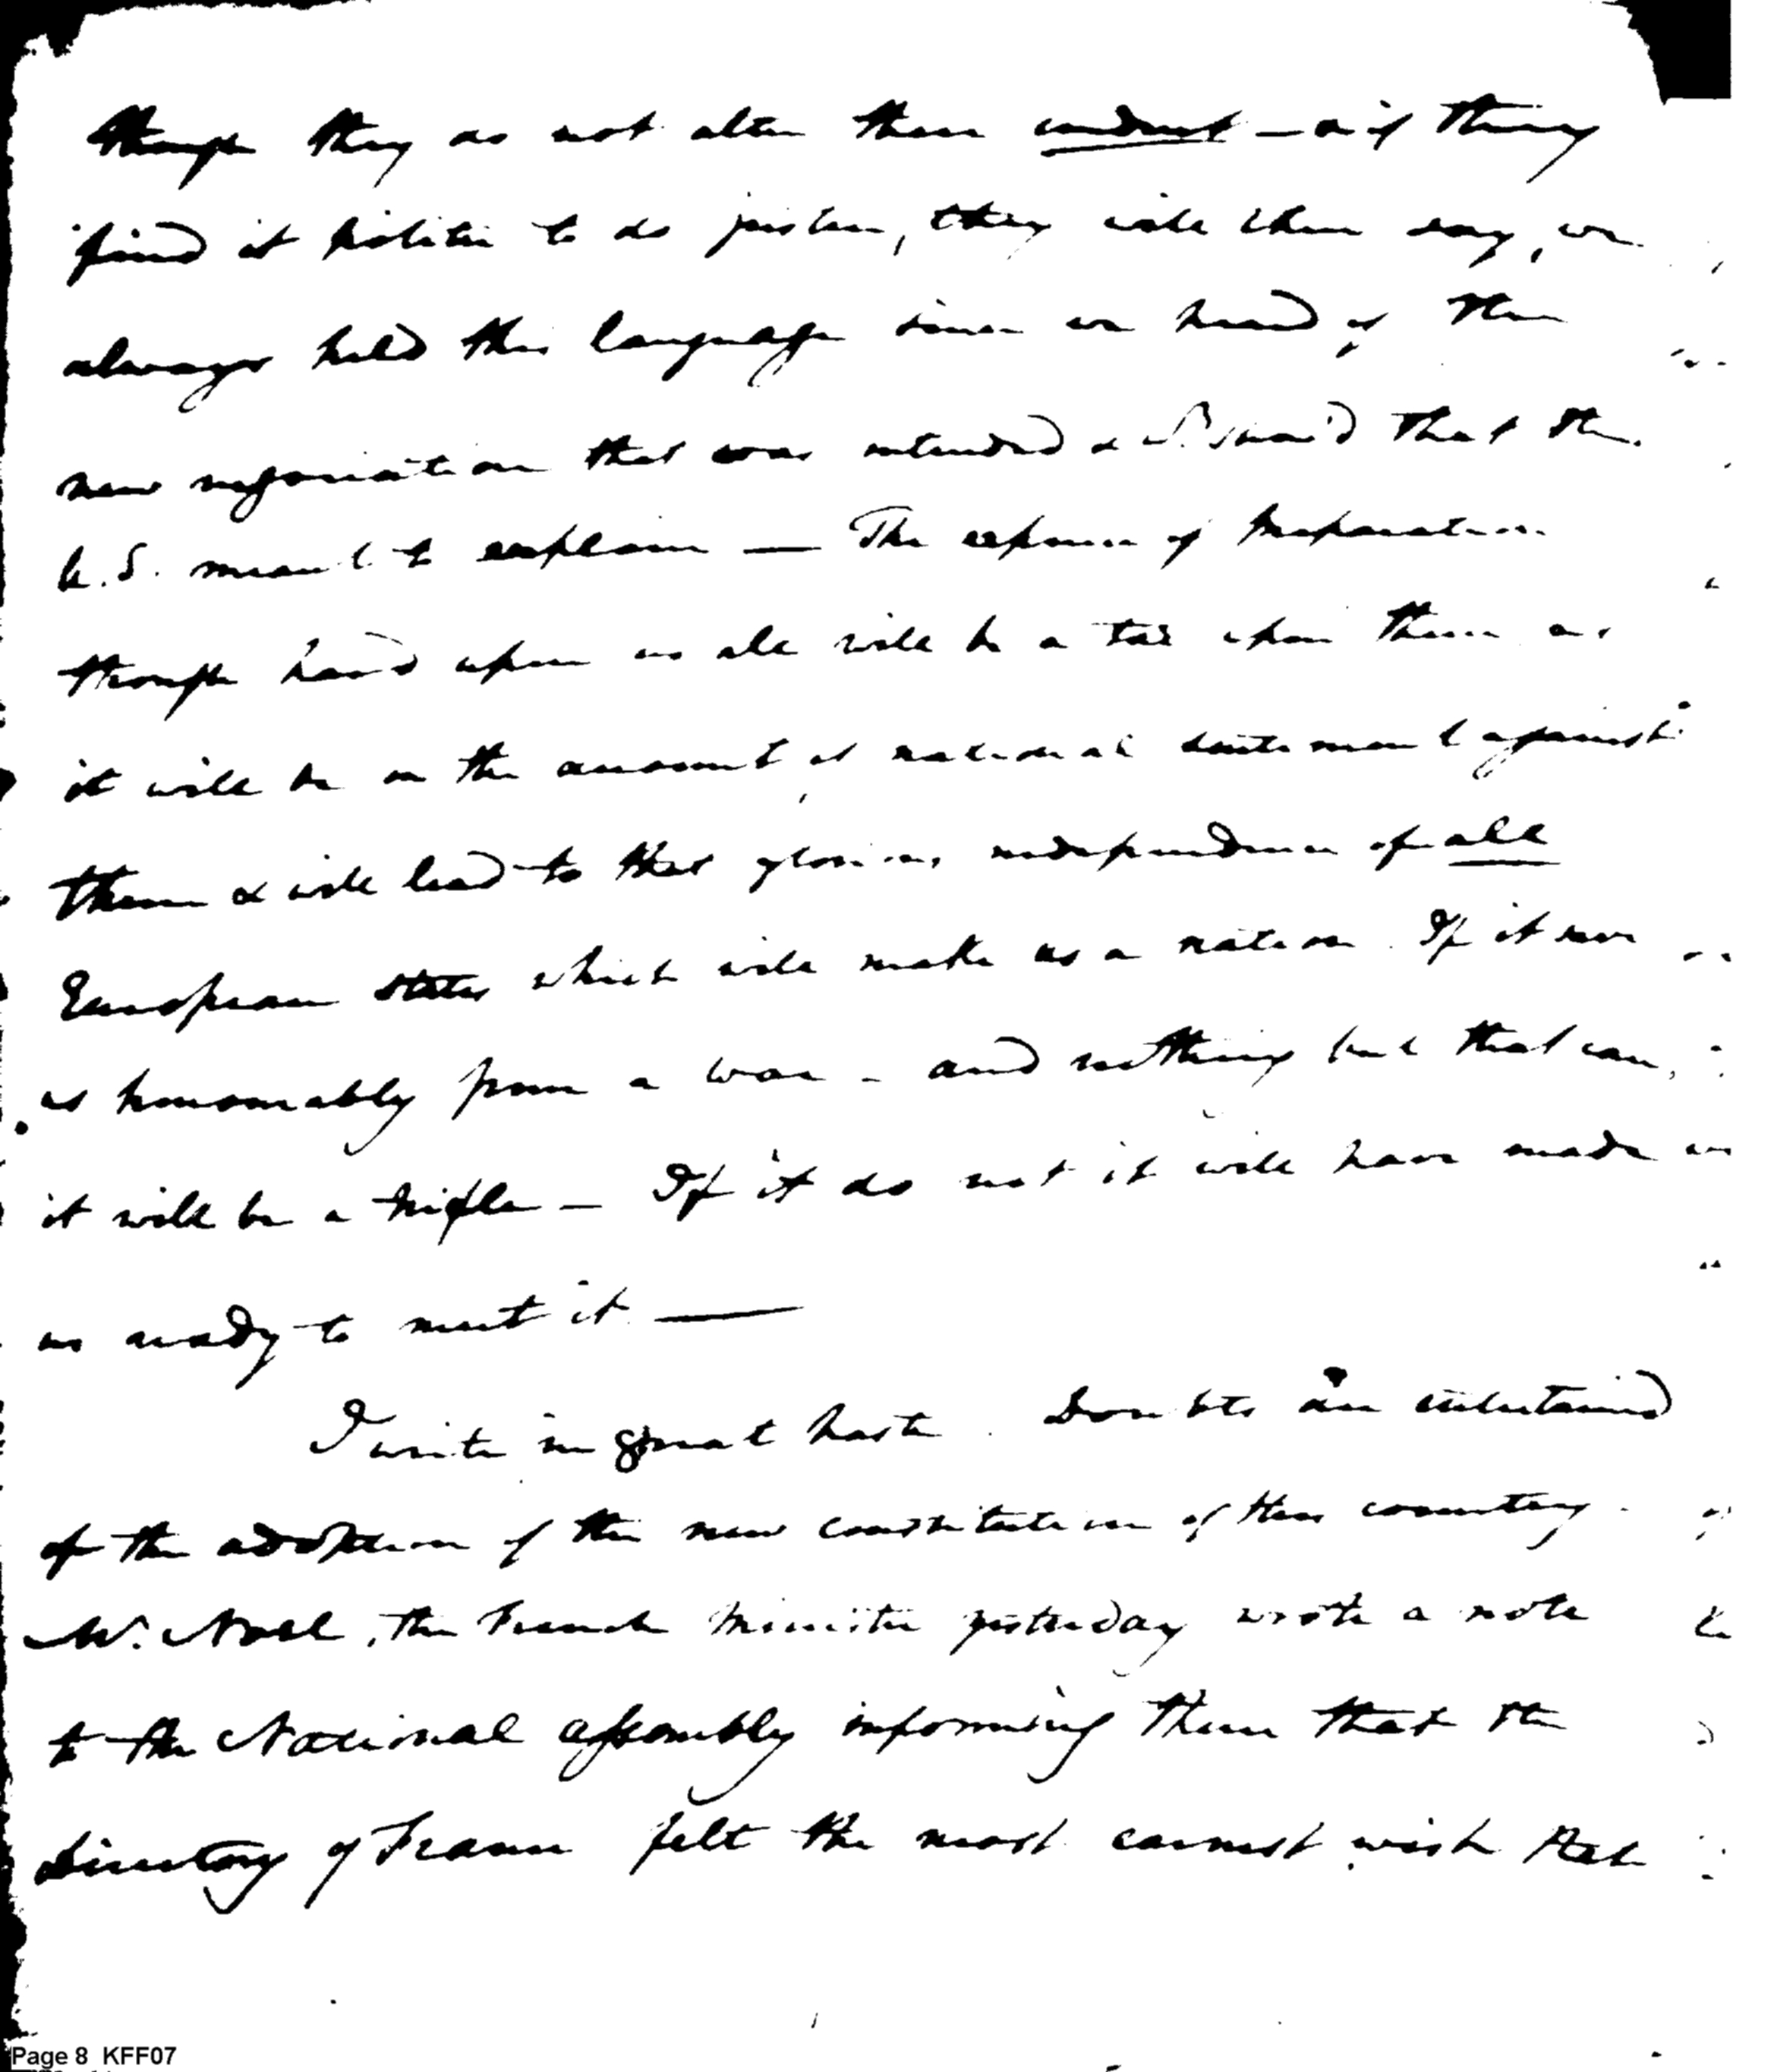 though they do not alter their conduct – & if they
find it politic to do justice, they will then say, we
always held this language since we heard of the
new negociation that was intended & that the
U.S. meant to explain — The expence of preparation
though hard upon us all will be a tax upon them as
it will be on the amount of national sentiment against
them & will lead to that glorious independence of all
European states which will make us a nation. If it save
us honourably from a war – and nothing but that can,
it will be a trifle – If it do not it will have made
us ready to meet it —
I write in great haste. Doubts are entertained
of the adoption of the new constitution of this country.
Mr. Noel, the French minister yesterday wrote a note
to the National assembly informing them that the
directory of France felt the most earnest wish that
Page 8 KFF07